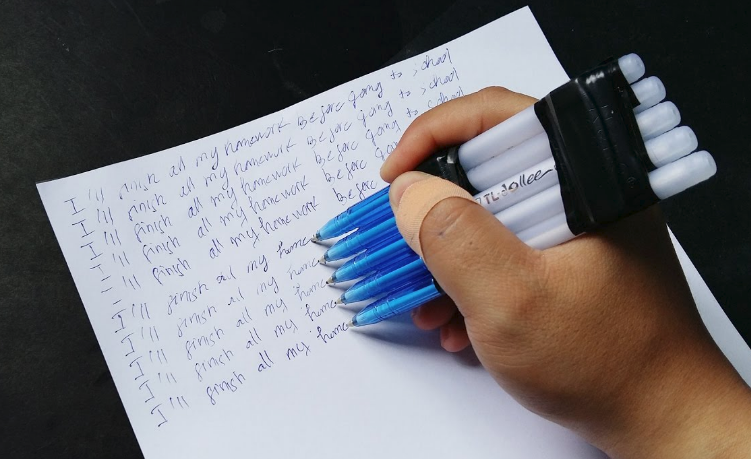 I'll finish all my homework before going to school
I'll finish all my homework before going to school
I'll finish all my homework before going to school
I'll finish all my homework before
I'll finish all my homework before
I'll finish all my home
I'll finish all my home
I'll finish all my home
I'll finish all my home
I'll finish all my home